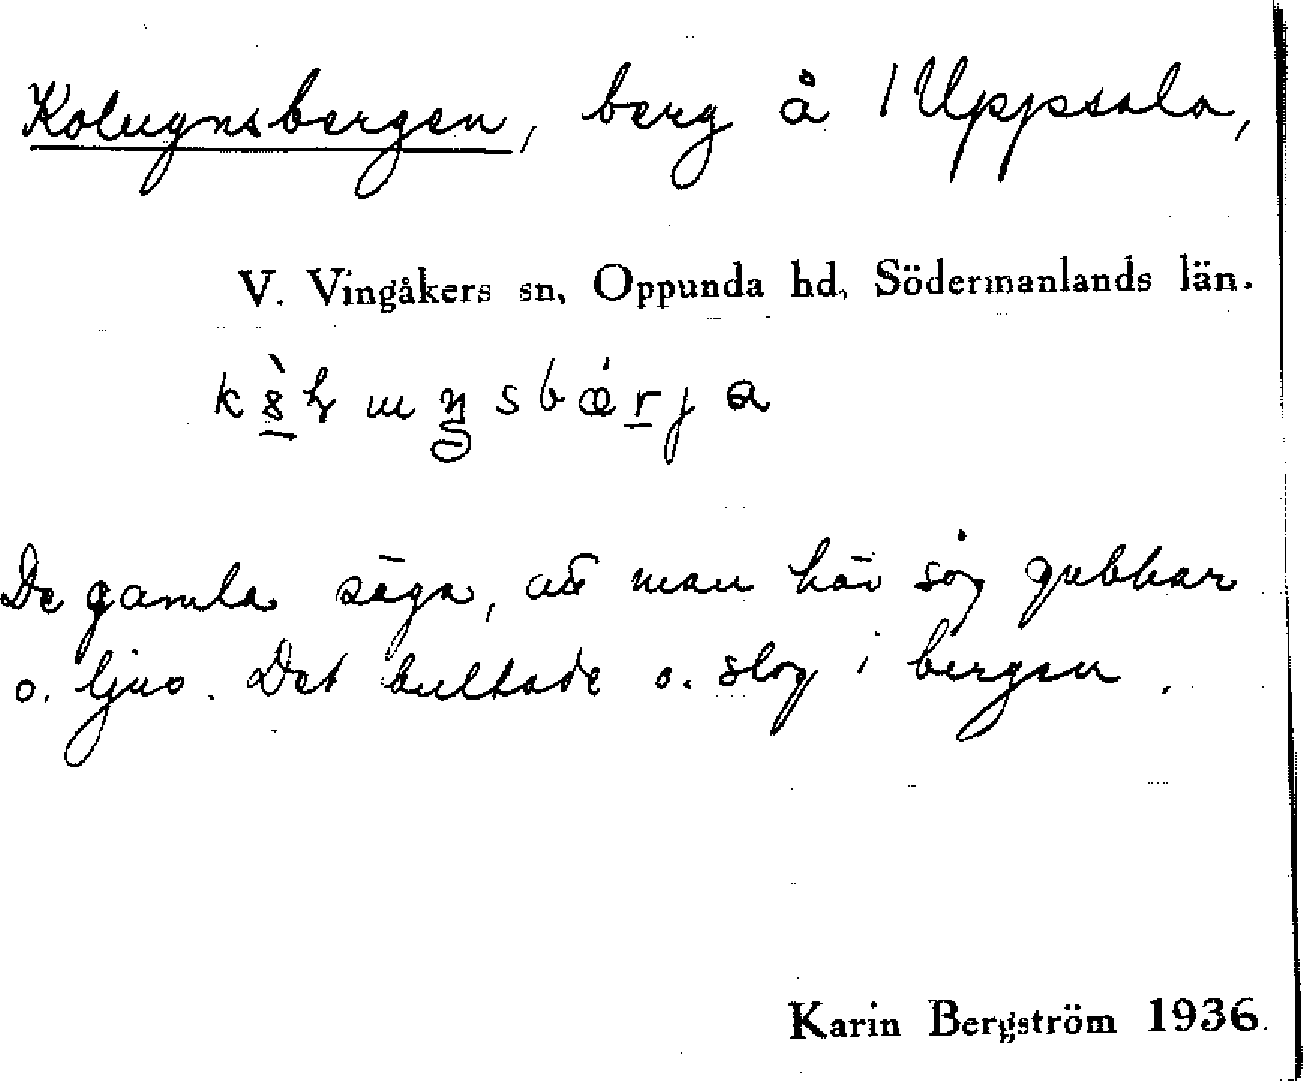 Kolugnsbergen, berg å 1 Uppsala,
V. Vingåkers sn, Oppunda hd, Södermanlands län.
De gamla säga, att man här såg gubbar
o. ljus. Det bultade o. slog i bergen.
Karin Bergström 1936.